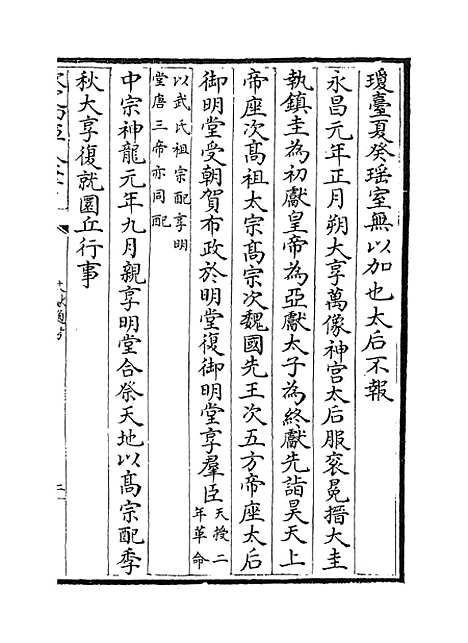 瓊臺夏癸瑶室無以加也太后不報
永昌元年正月朔大享萬像神宫太后服衮冕搢大圭
執鎮圭為初獻皇帝為亞獻太子為終獻先詣昊天上
帝座次髙祖太宗髙宗次魏國先王次五方帝座太后
御明堂受朝賀布政於明堂復御明堂享羣臣天授二
年革命
以武氏祖宗配享明
堂唐三帝亦同配
中宗神龍元年九月親享明堂合祭天地以髙宗配季
秋大享復就圜丘行事